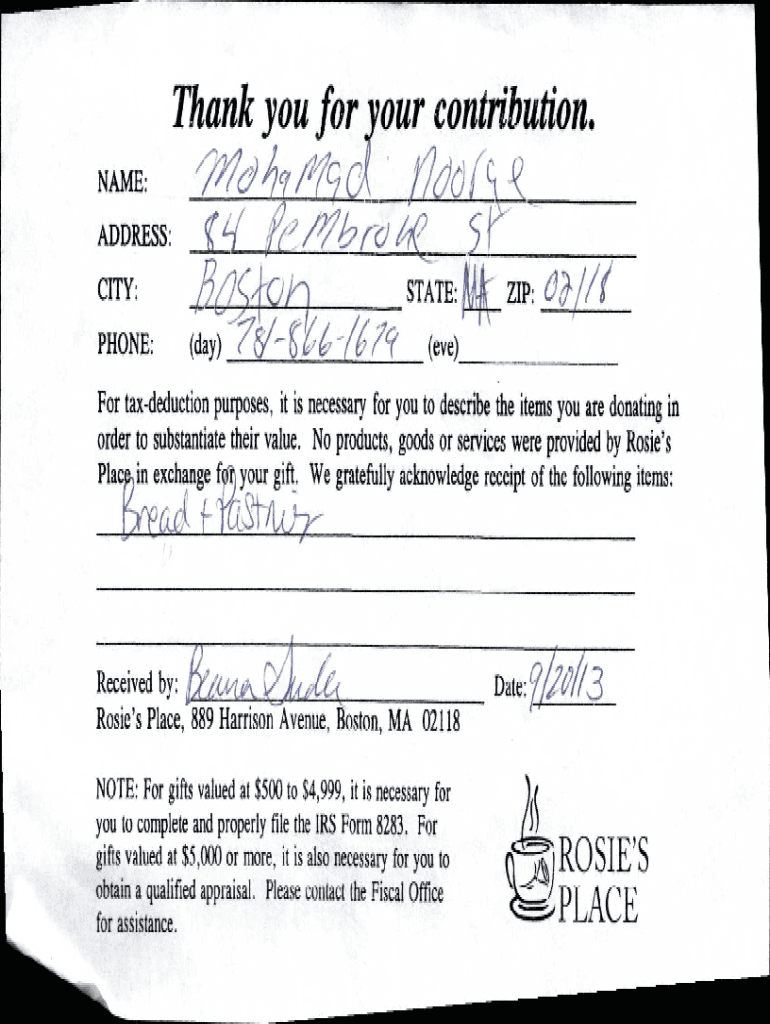 Thank you for your contribution.
NAME: Mohamad
ADDRESS: 84 Pembroke St
CITY: Boston STATE: MA ZIP: 02118
PHONE: (day) 781-866-1679 (eve)
For tax-deduction purposes, it is necessary for you to describe the items you are donating in
order to substantiate their value. No products, goods or services were provided by Rosie's
Place in exchange for your gift. We gratefully acknowledge receipt of the following items:
Bread +
Received by: Date: 9/20/13
Rosie's Place, 889 Harrison Avenue, Boston, MA 02118
NOTE: For gifts valued at $500 to $4,999, it is necessary for
you to complete and properly file the IRS Form 8283. For
gifts valued at $5,000 or more, it is also necessary for you to
obtain a qualified appraisal. Please contact the Fiscal Office
for assistance.
ROSIE'S
PLACE